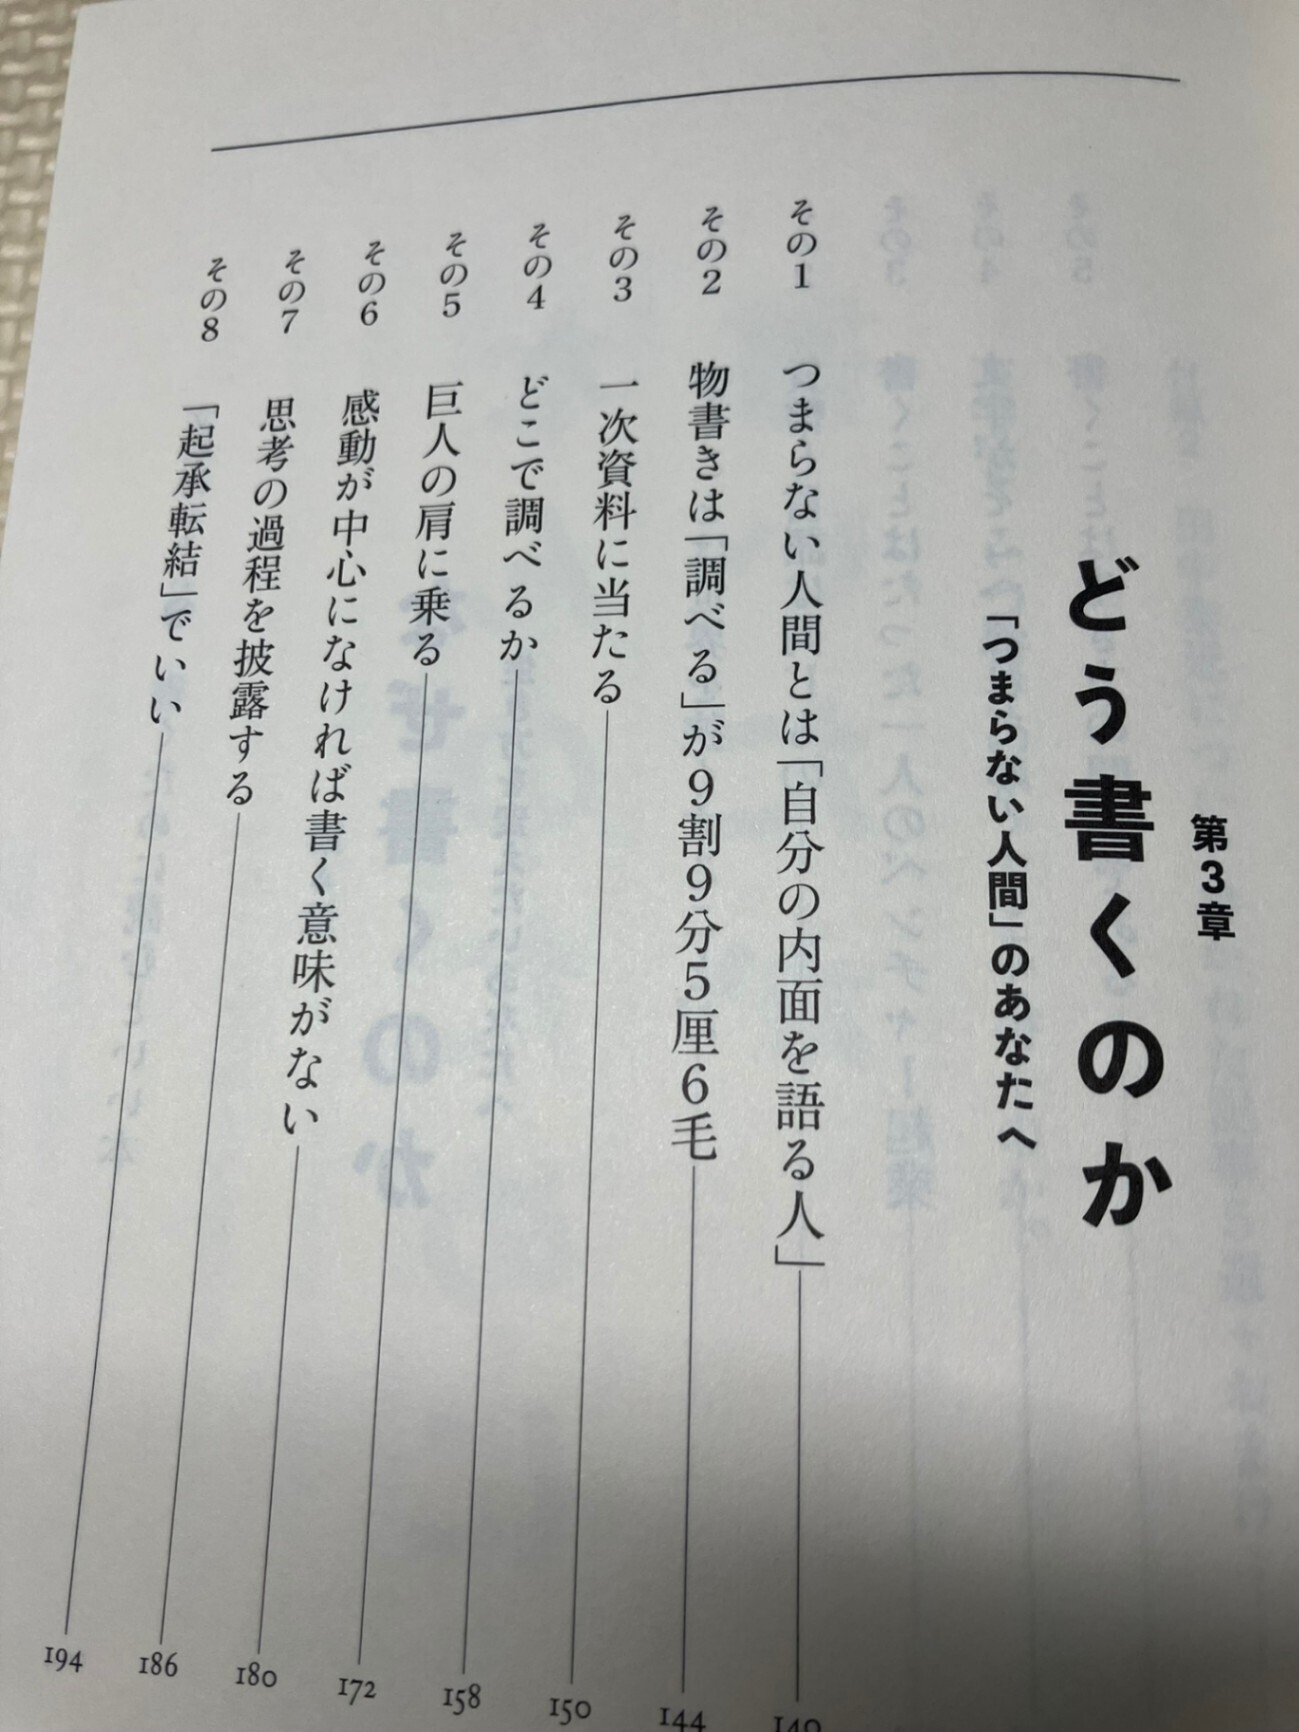 第3章
どう書くのか
「つまらない人間」のあなたへ
その1 つまらない人間とは「自分の内面を語る人」 140
その2 物書きは「調べる」が9割9分5厘6毛 144
その3 一次資料に当たる 150
その4 どこで調べるか 158
その5 巨人の肩に乗る 172
その6 感動が中心になければ書く意味がない 180
その7 思考の過程を披露する 186
その8 「起承転結」でいい 194